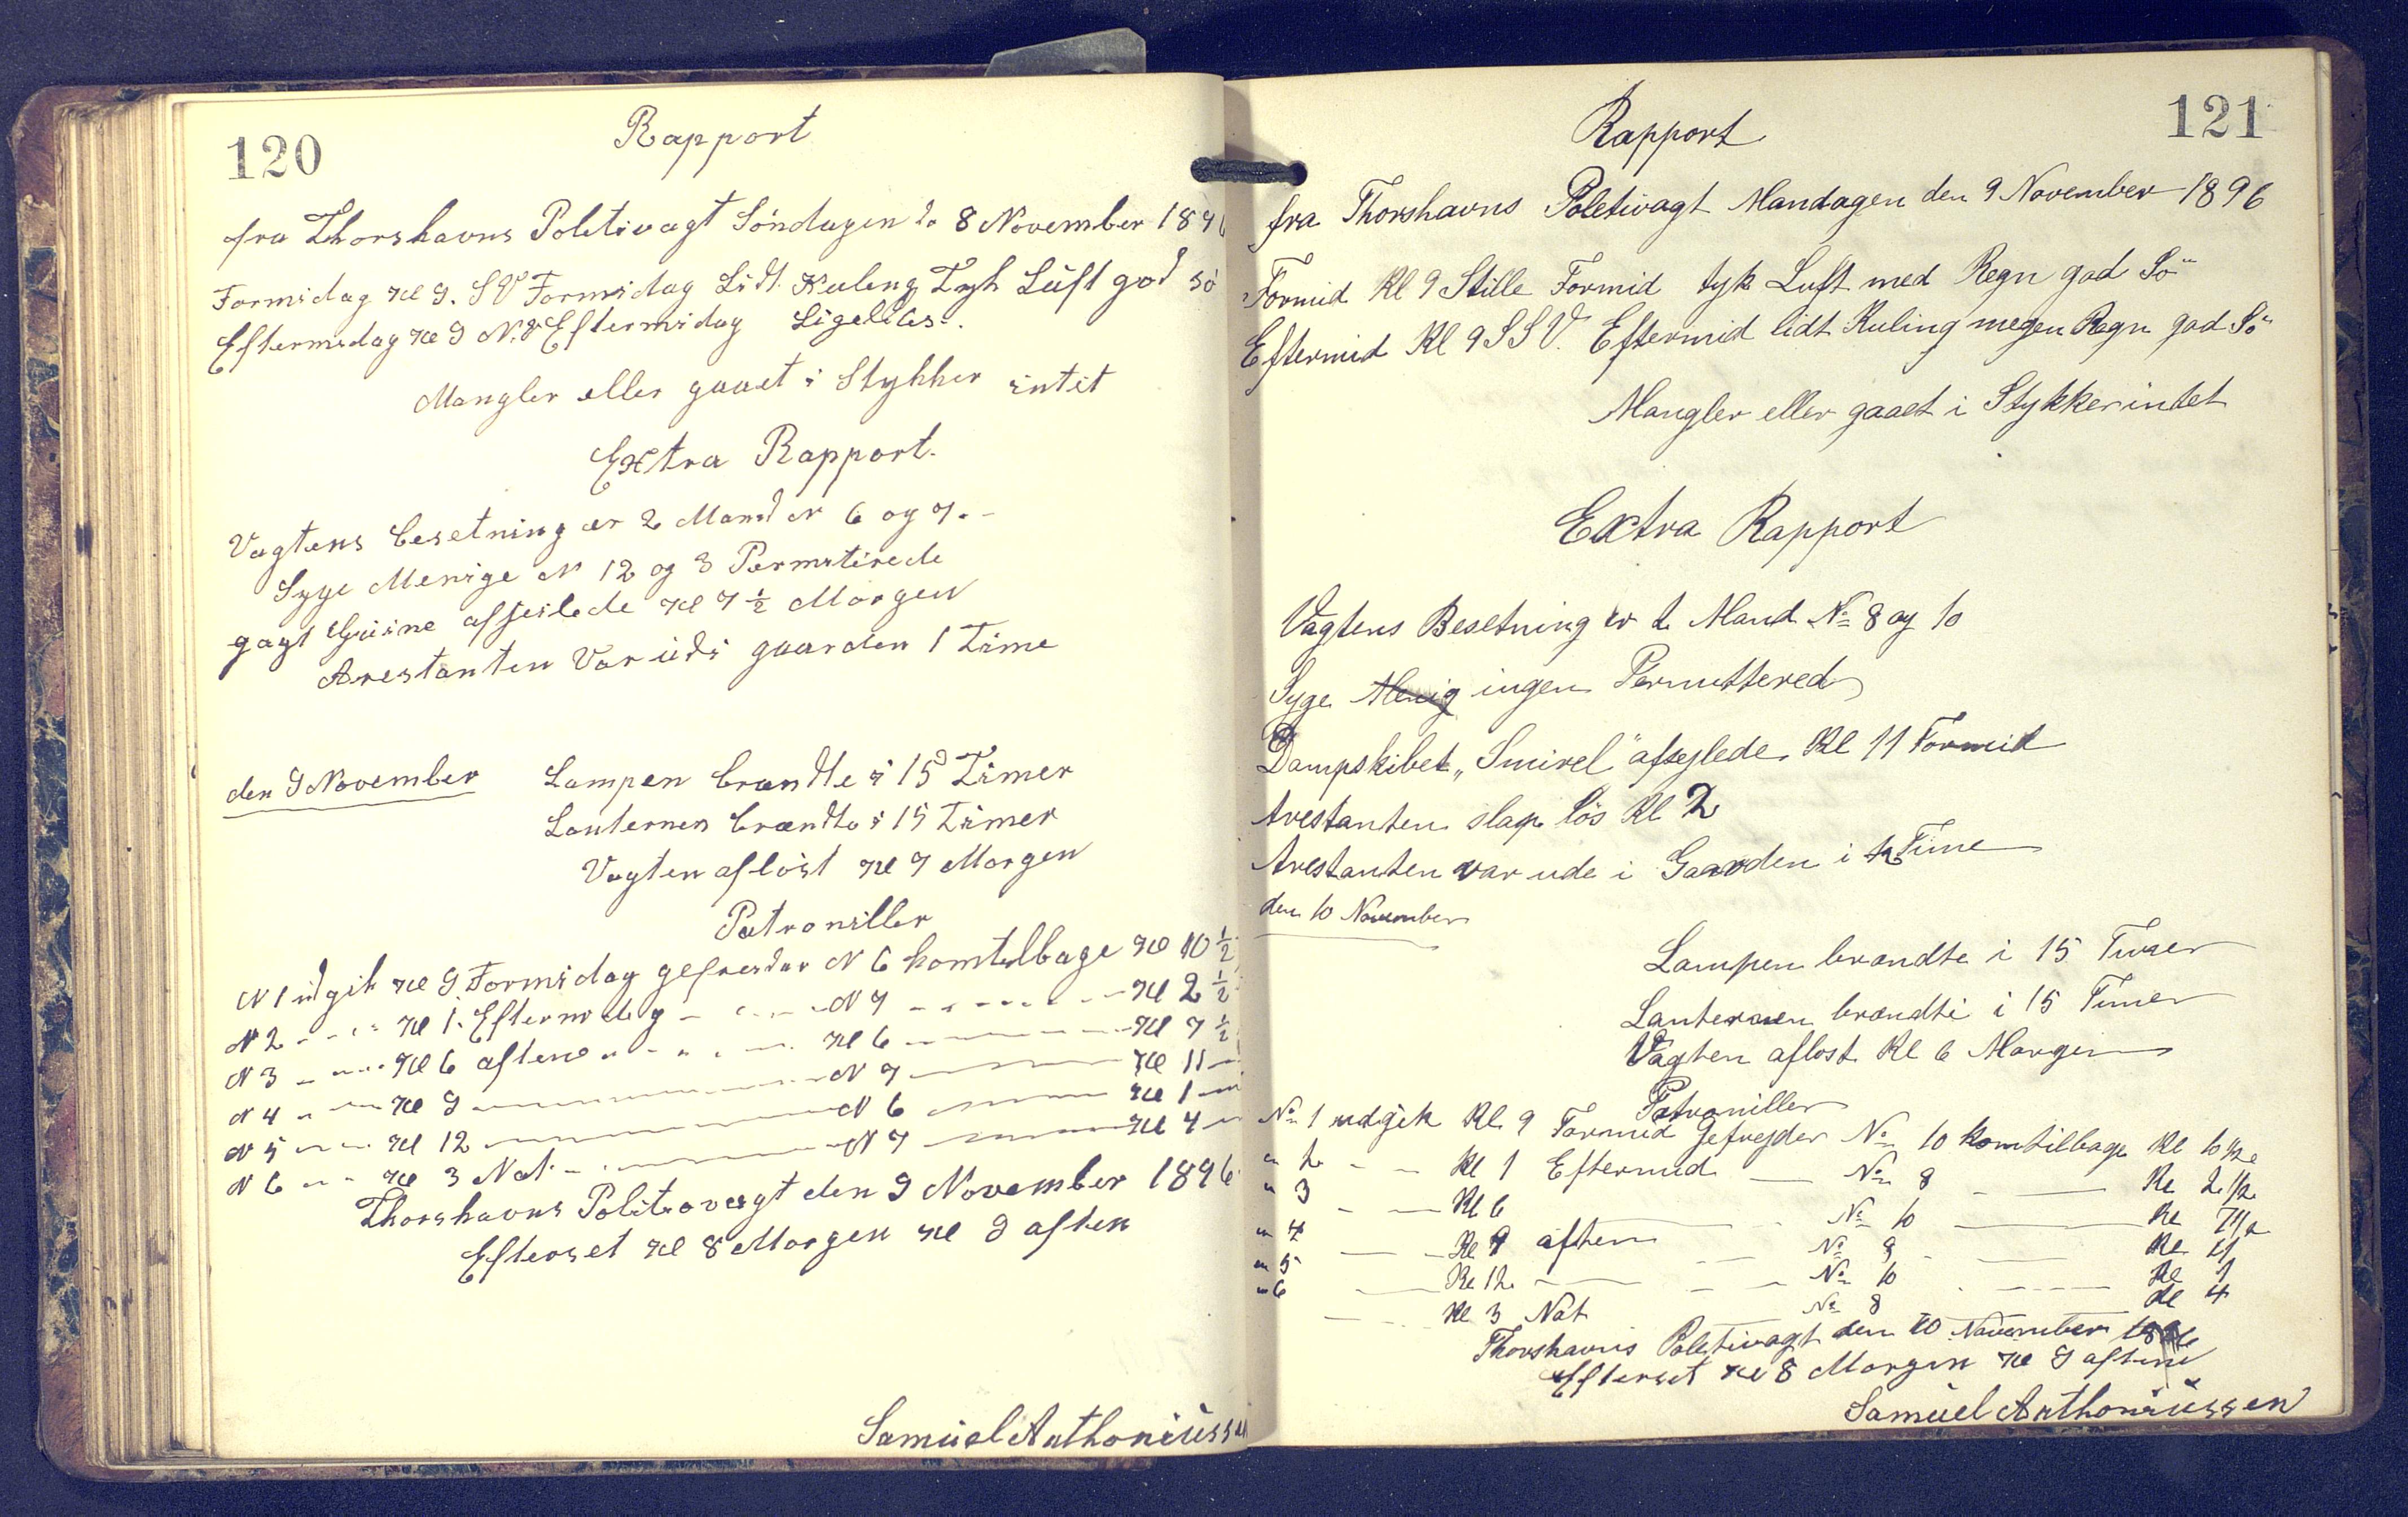 120
Rapport
fra Thorshavns Politivagt Söndagen d. 8 November 1896
Formidag Kl 9. SV Formidag Lidt Kuling Tyk Luft god sö
Eftermidag Kl 9 N.V Eftermidag Ligeledes.
Mangler eller gaaet i Stykker intet
Extra Rapport.
Vagtens besetning er 2 Mand N 6 og 7.
Syge Menige N 12 og 3 Permitirede
gagt afseilede Kl 7 ½ Morgen
Arestanten Var udi gaarden 1 Time
den 9 November Lampen brændte i 15 Timer
Lanternen brændte i 15 Timer
Vagten aflöst Kl 7 Morgen
Patroniller
N 1 udgik Kl 9 Formidag gefreider N 6 kom tilbage Kl 10 ½
N 2 - - - Kl 1. Eftermidag - - - N 7 - - - Kl 2 ½
N 3 - - - Kl 6 aften - - - Kl 6 - - - Kl 7 ½
N 4 - - - Kl 9 - - - N 7 - - - Kl 11 -
N 5 - - - Kl 12 - - - N 6 - - - Kl 1 -
N 6 - - - Kl 3 Nat - - - N 7 - - - Kl 4 -
Thorshavns Politivagt den 9 November 1896
Efterset Kl 8 Morgen Kl 9 aften
Samuel Anthoniussen
121
Rapport
fra Thorshavns Poletivagt Mandagen den 9 November 1896
Formid Kl 9 Stille Formid tyk Luft med Regn god Sö
Eftermid Kl 9 SSV. Eftermid lidt Kuling megen Regn god Sö
Mangler eller gaaet i Stykker indet
Extra Rapport
Vagtens Besetning er 2 Mand No 8 og 10
Syge Menig ingen Permittered
Dampskibet „Smirel" afseglede Kl 11 Formid
Arestanten slap lös Kl 2
Arestanten var ude i Gaarden i ½ Time
den 10 November
Lampen brændte i 15 Timer
Lanternen brændte i 15 Timer
Vagten aflöst Kl 6 Morgen
Patroniller
No 1 udgik Kl 9 Formid Gefrejder No 10 kom tilbage Kl 10 ½
" 2 - - Kl 1 Eftermid - No 8 - - Kl 2 ½
" 3 - - Kl 6 - - No 10 - - Kl 7 ½
" 4 - - Kl 9 aften - - No 8 - - Kl 11
" 5 - - Kl 12 - - No 10 - - Kl 1
" 6 - - Kl 3 Nat No 8 - - Kl 4
Thorshavns Poletivagt den 10 November 1896
Efterset Kl 8 Morgen Kl 9 aften
Samuel Anthoniussen